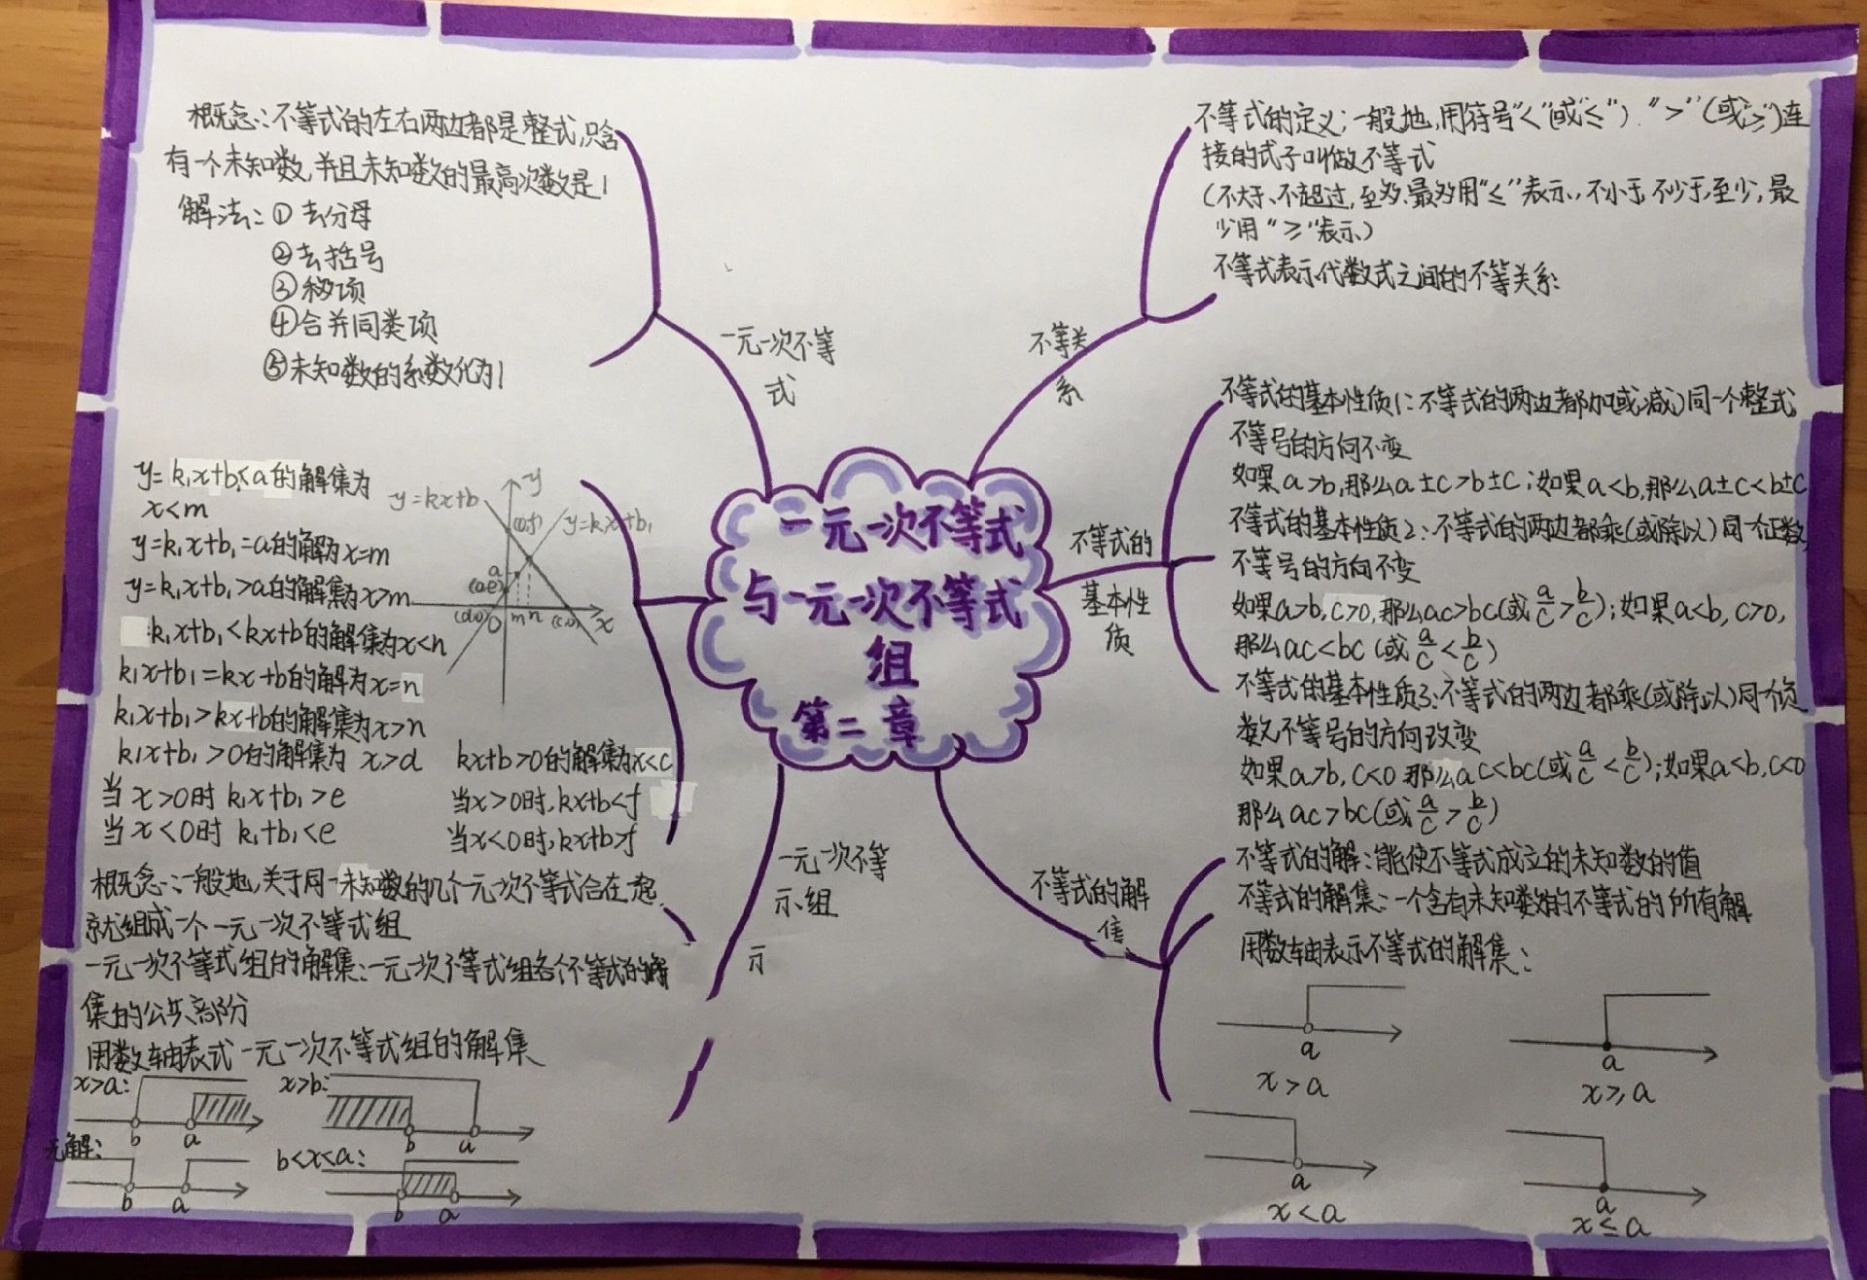 一元一次不等式
与一元一次不等式
组
第二章
一元一次不等
式
概念:不等式的左右两边都是整式,只含
有一个未知数,并且未知数的最高次数是1
解法:①去分母
②去括号
③移项
④合并同类项
⑤未知数的系数化为1
不等关
系
不等式的定义:一般地,用符号"<"(或"≤")、">"(或≥)连
接的式子叫做不等式
(不大于、不超过,至多、最多用"≤"表示,不小于,不少于,至少,最
少用"≥"表示)
不等式表示代数式之间的不等关系
不等式的
基本性
质
不等式的基本性质1:不等式的两边都加(或减)同一个整式,
不等号的方向不变
如果a>b,那么a±c>b±c;如果a<b,那么a±c<b±c
不等式的基本性质2:不等式的两边都乘(或除以)同一个正数,
不等号的方向不变
如果a>b,c>0,那么ac>bc(或a/c>b/c);如果a<b,c>0,
那么ac<bc(或a/c<b/c)
不等式的基本性质3:不等式的两边都乘(或除以)同一个负
数,不等号的方向改变
如果a>b,c<0那么ac<bc(或a/c<b/c);如果a<b,c<0
那么ac>bc(或a/c>b/c)
y=k₁x+b<a的解集为
x<m
y=k₁x+b₁=a的解为x=m
y=k₁x+b₁>a的解集为x>m
k₁x+b₁<kx+b的解集为x<n
k₁x+b₁=kx+b的解为x=n
k₁x+b₁>kx+b的解集为x>n
k₁x+b₁>0的解集为x>d
kx+b>0的解集为x<c
当x>0时k₁x+b₁>e
当x>0时,kx+b<f
当x<0时k₁+b₁<e
当x<0时,kx+b>f
y=kx+b
y
(0,f)
y=k₁x+b₁
a
(0,e)
(d,0)
O
m
n
(c,0)
x
一元一次不等
示组
示
概念:一般地,关于同一未知数的几个一元一次不等式合在一起,
就组成一个一元一次不等式组
一元一次不等式组的解集:一元一次不等式组各个不等式的解
集的公共部分
用数轴表式一元一次不等式组的解集
x>a:
b a
x>b:
b a
无解:
b a
b<x<a:
b a
不等式的解
不等式的解:能使不等式成立的未知数的值
不等式的解集:一个含有未知数的不等式的所有解
用数轴表示不等式的解集:
a
x>a
a
x≥a
a
x<a
a
x≤a